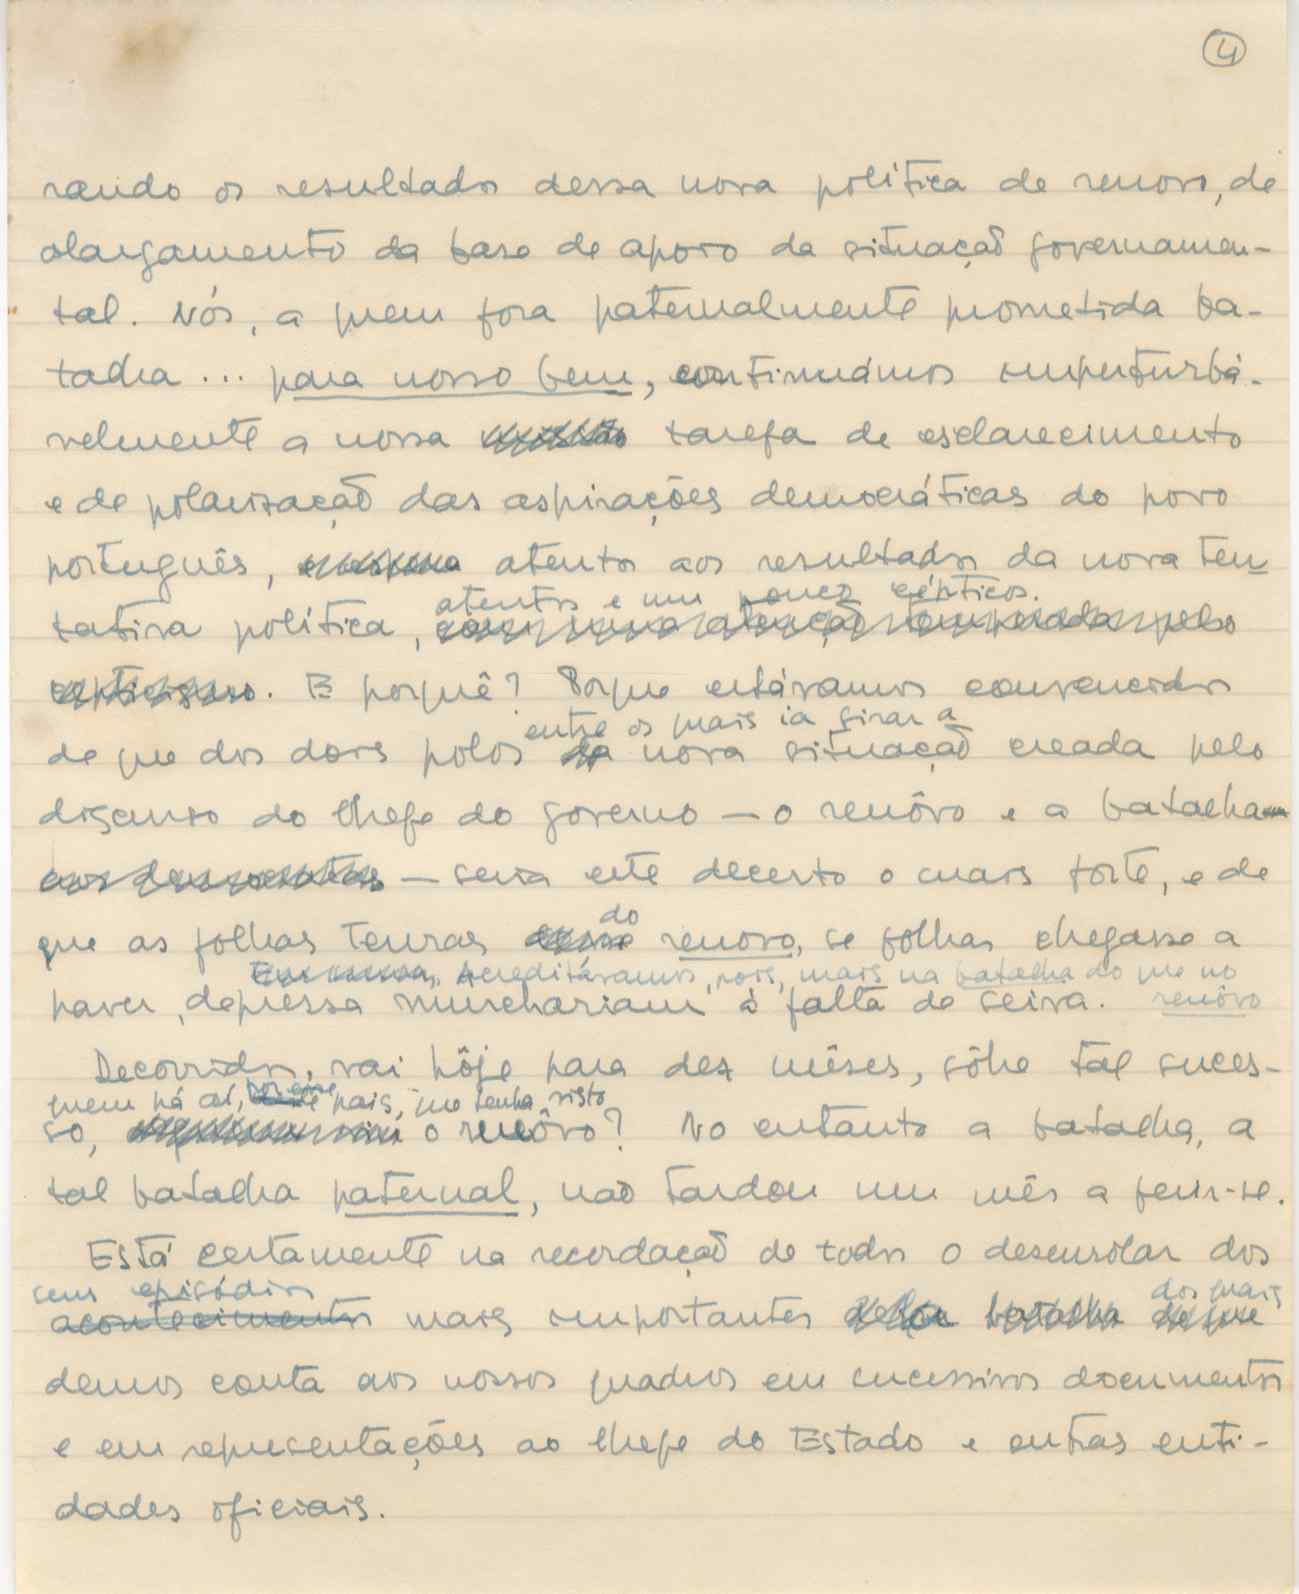 4
rando os resultados dessa nova política de renovo, de
alargamento da base de apoio da situação governamen-
tal. Nós, a quem fora paternalmente prometida ba-
talha ... para nosso bem, continuámos imperturbà-
velmente a nossa tarefa de esclarecimento
e de polarização das aspirações democráticas do povo
português, atentos aos resultados da nova ten-
atentos e um pouco cépticos.
tativa política, com uma atenção temperada pelo
septicismo. E porquê? Porque estávamos convencidos
entre os quais ia girar a
de que dos dois polos da nova situação creada pelo
discurso do Chefe do governo — o renôvo e a batalha
aos democratas — seria este decerto o mais forte, e de
do
que as folhas tenras desse renovo, se folhas chegasse a
Em suma, Acreditávamos, pois, mais na batalha do que no
haver, depressa murchariam à falta de seiva. renôvo
Decorridos, vai hôje para dez mêses, sôbre tal suces-
quem há aí, pois, que tenha visto
so, o renôvo? No entanto a batalha, a
tal batalha paternal, não tardou um mês a ferir-se.
Está certamente na recordação de todos o desenrolar dos
seus episódios
dos quais
acontecimentos mais importantes della batalha de que
demos conta aos nossos quadros em sucessivos documentos
e em representações ao Chefe do Estado e outras enti-
dades oficiais.